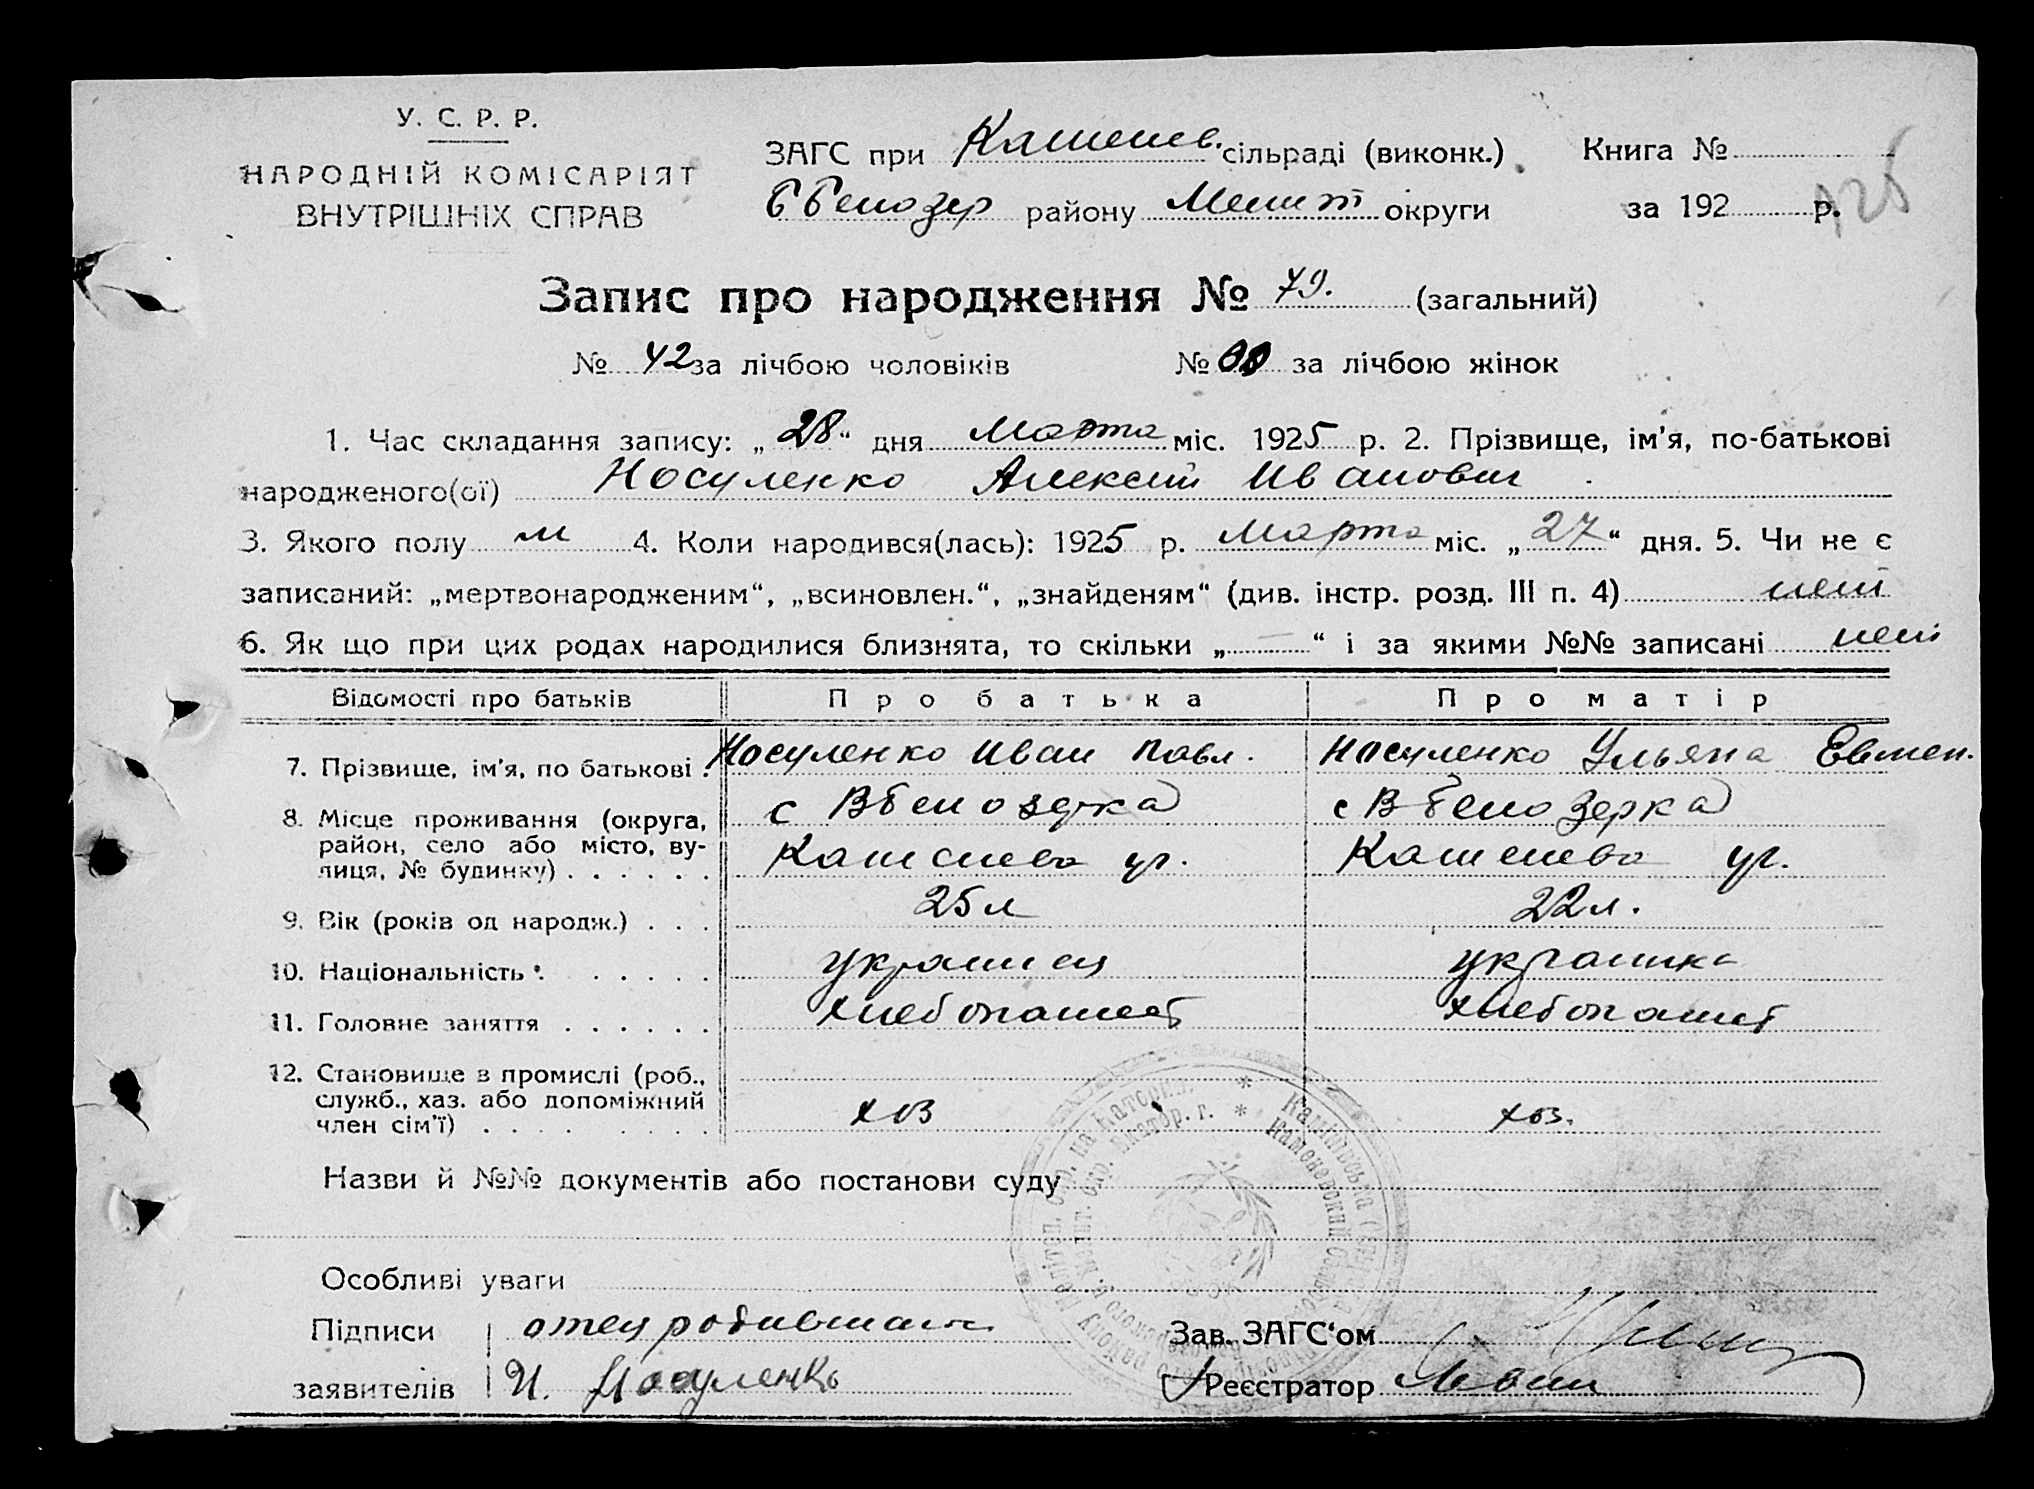 У. С. Р. Р.
НАРОДНІЙ КОМІСАРІЯТ
ВНУТРІШНІХ СПРАВ
ЗАГС при Каменев. сільраді (виконк.)
ББелозер району Мелит округи
Книга №
за 192 р.
Запис про народження № 79. (загальний)
№ 42 за лічбою чоловіків № за лічбою жінок
1. Час складання запису: „28“ дня Марта міс. 1925 р. 2. Прізвище, ім'я, по-батькові
народженого(ої) Носуленко Алексей Иванович
3. Якого полу м 4. Коли народився(лась): 1925 р. Марта міс. „27“ дня. 5. Чи не є
записаний: „мертвонародженим“, „всиновлен.“, „знайденям“ (див. інстр. розд. III п. 4) нет
6. Як що при цих родах народилися близнята, то скільки „—“ і за якими №№ записані нет
Відомості про батьків Про батька Про матір
7. Прізвище, ім'я, по батькові Носуленко Иван Павл. Носуленко Ульяна Евмен.
8. Місце проживання (округа, район, село або місто, вулиця, № будинку) с ВБелозерка с ВБелозерка
Каменева ул. Каменева ул.
9. Вік (років од народж.) 25 л 22 л.
10. Національність украинец украинка
11. Головне заняття хлебопашест хлебопашест
12. Становище в промислі (роб., служб., хаз. або допоміжний член сім'ї) хоз хоз.
Назви й №№ документів або постанови суду
Особливі уваги
Підписи отец
заявителів И. Носуленко
Зав. ЗАГС'ом
Реєстратор